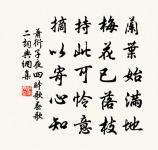 蘭葉始滿地
梅花已落枝
持此可憐意
摘以寄心知
蕭衍子夜四時歌春歌
二詞典網集